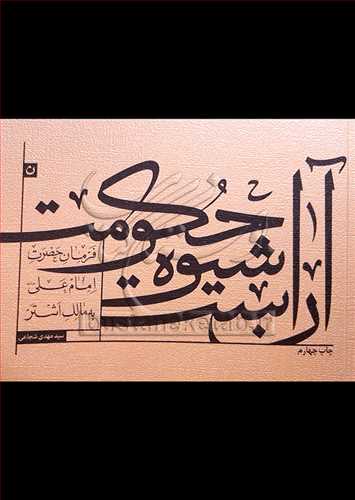 شیوه
حکومت
فرمان حضرت
امام علی
به مالک اشتر
سید مهدی شجاعی
چاپ چهارم